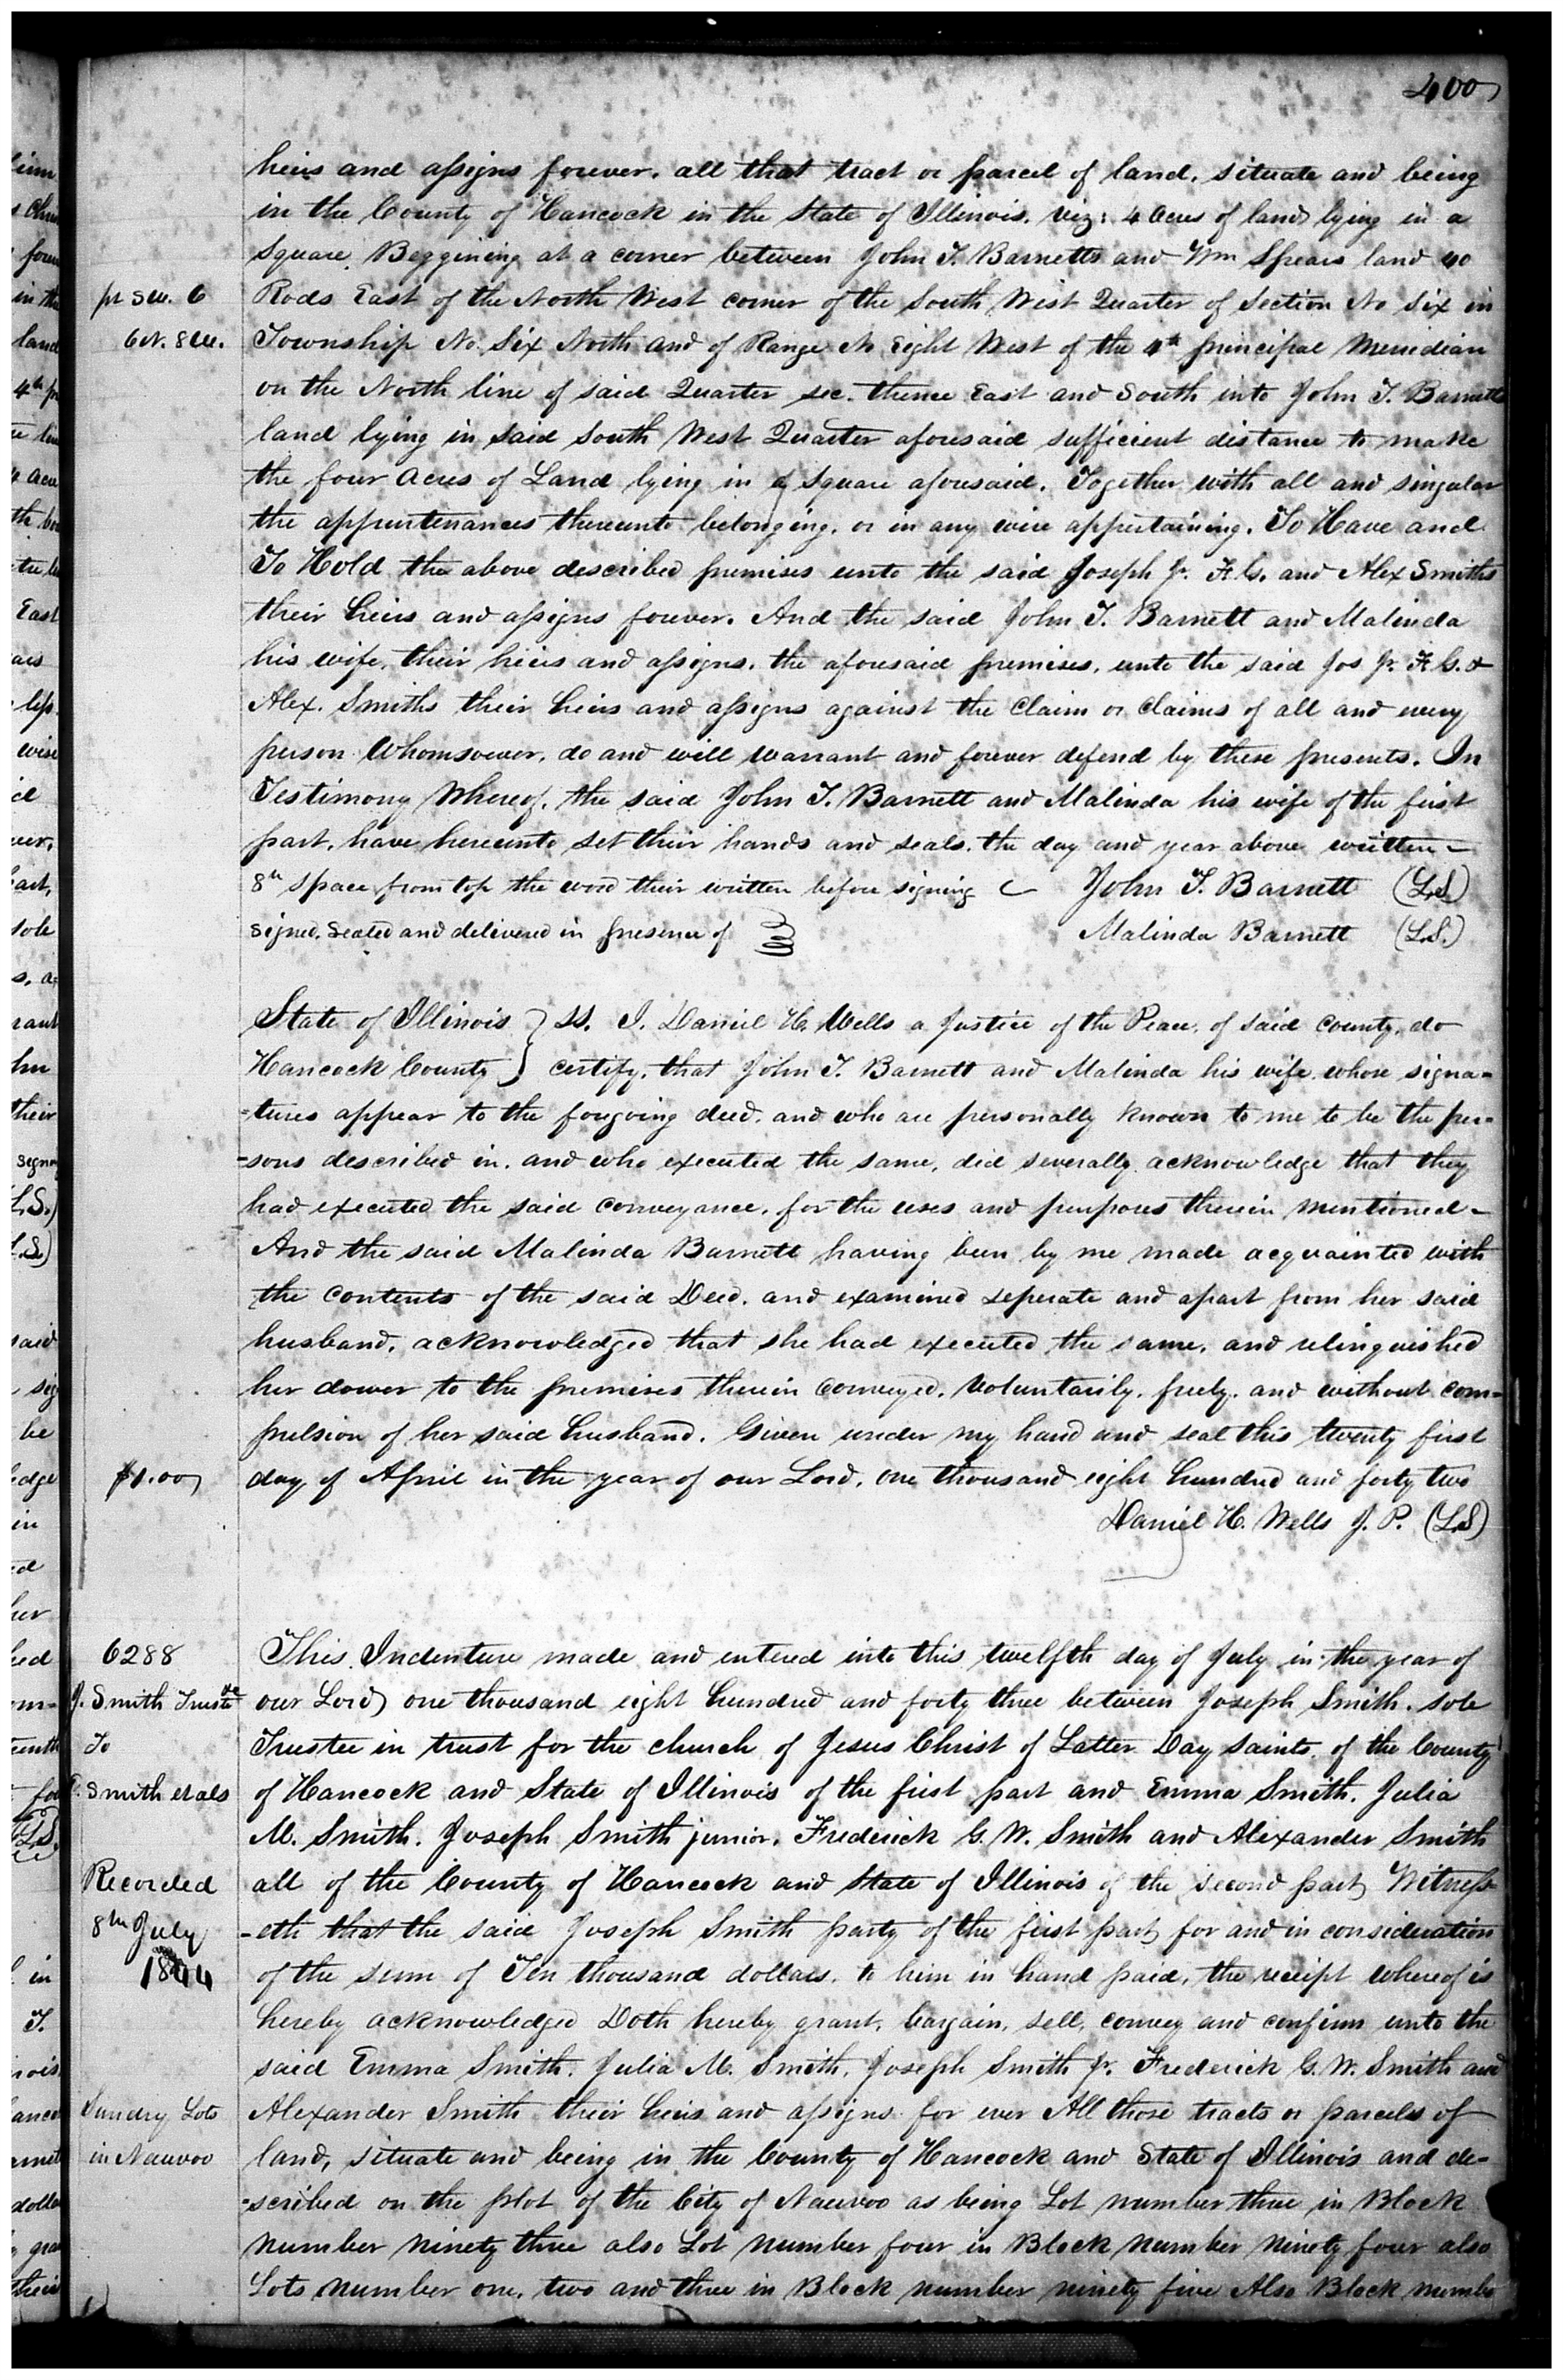 400
heirs and assigns forever. all that tract or parcel of land, situate and being
in the County of Hancock in the State of Illinois. viz: 4 acres of land lying in a
Square. Beggining at a corner between John T. Barnetts and Wm Spears land 40
pt Sec. 6
Rods East of the North West corner of the South West Quarter of Section No Six in
6 N. 8 W.
Township No. Six North and of Range No Eight West of the 4th principal Meridian
on the North line of said Quarter sec. thence East and South into John T. Barnetts
land lying in said South West Quarter aforesaid sufficient distance to make
the four acres of Land lying in a square aforesaid. Together with all and singular
the appurtenances thereunto belonging. or in any wise appertaining. To Have and
To Hold the above described premises unto the said Joseph Jr. F. G. and Alex Smiths
their heirs and assigns forever. And the said John T. Barnett and Malinda
his wife, their heirs and assigns. the aforesaid premises. unto the said Jos Jr. F G. &
Alex. Smiths their heirs and assigns against the Claim or Claims of all and every
person Whomsoever, do and will warrant and forever defend by these presents. In
Testimony Whereof, the said John T. Barnett and Malinda his wife of the first
part, have hereunto set their hands and seals. the day and year above written -
8th space from top the word their written before signing
John T. Barnett (L.S.)
Signed, Sealed and delivered in presence of
Malinda Barnett (L.S.)
State of Illinois } SS. I. Daniel H. Wells a Justice of the Peace, of said County, do
Hancock County } certify. that John T. Barnett and Malinda his wife. whose signa=
=tures appear to the foregoing deed, and who are personally known to me to be the per=
=sons described in. and who executed the same, did severally acknowledge that they
had executed the said conveyance. for the uses and purposes therein mentioned -
And the said Malinda Barnett having been by me made acquainted with
the contents of the said Deed, and examined seperate and apart from her said
husband, acknowledged that she had executed the same, and relinquished
her dower to the premises therein conveyed. voluntarily. freely. and without com=
pulsion of her said husband. Given under my hand and seal this twenty first
$1.00
day of April in the year of our Lord. one thousand eight hundred and forty two
Daniel H. Wells J. P. (L.S)
6288
This Indenture made and entered into this twelfth day of July in the year of
J. Smith Trustee
our Lord one thousand eight hundred and forty three between Joseph Smith. sole
To
Trustee in trust for the church of Jesus Christ of Latter Day saints. of the County
E. Smith et als
of Hancock and State of Illinois of the first part and Emma Smith. Julia
M. Smith. Joseph Smith junior. Frederick G. W. Smith and Alexander Smith
Recorded
all of the County of Hancock and State of Illinois of the second part Witness-
8th July
-eth that the said Joseph Smith party of the first part for and in consideration
1844
of the sum of Ten thousand dollars. to him in hand paid, the receipt whereof is
hereby acknowledged Doth hereby grant, bargain, sell, convey and confirm unto the
said Emma Smith. Julia M. Smith. Joseph Smith Jr. Frederick G. W. Smith and
Sundry Lots
Alexander Smith their heirs and assigns for ever All those tracts or parcels of
in Nauvoo
land, situate and being in the County of Hancock and State of Illinois and de-
=scribed on the plot of the City of Nauvoo as being Lot number three in Block
number ninety three also Lot number four in Block number ninety four also
Lots number one, two and three in Block number ninety five Also Block numbe